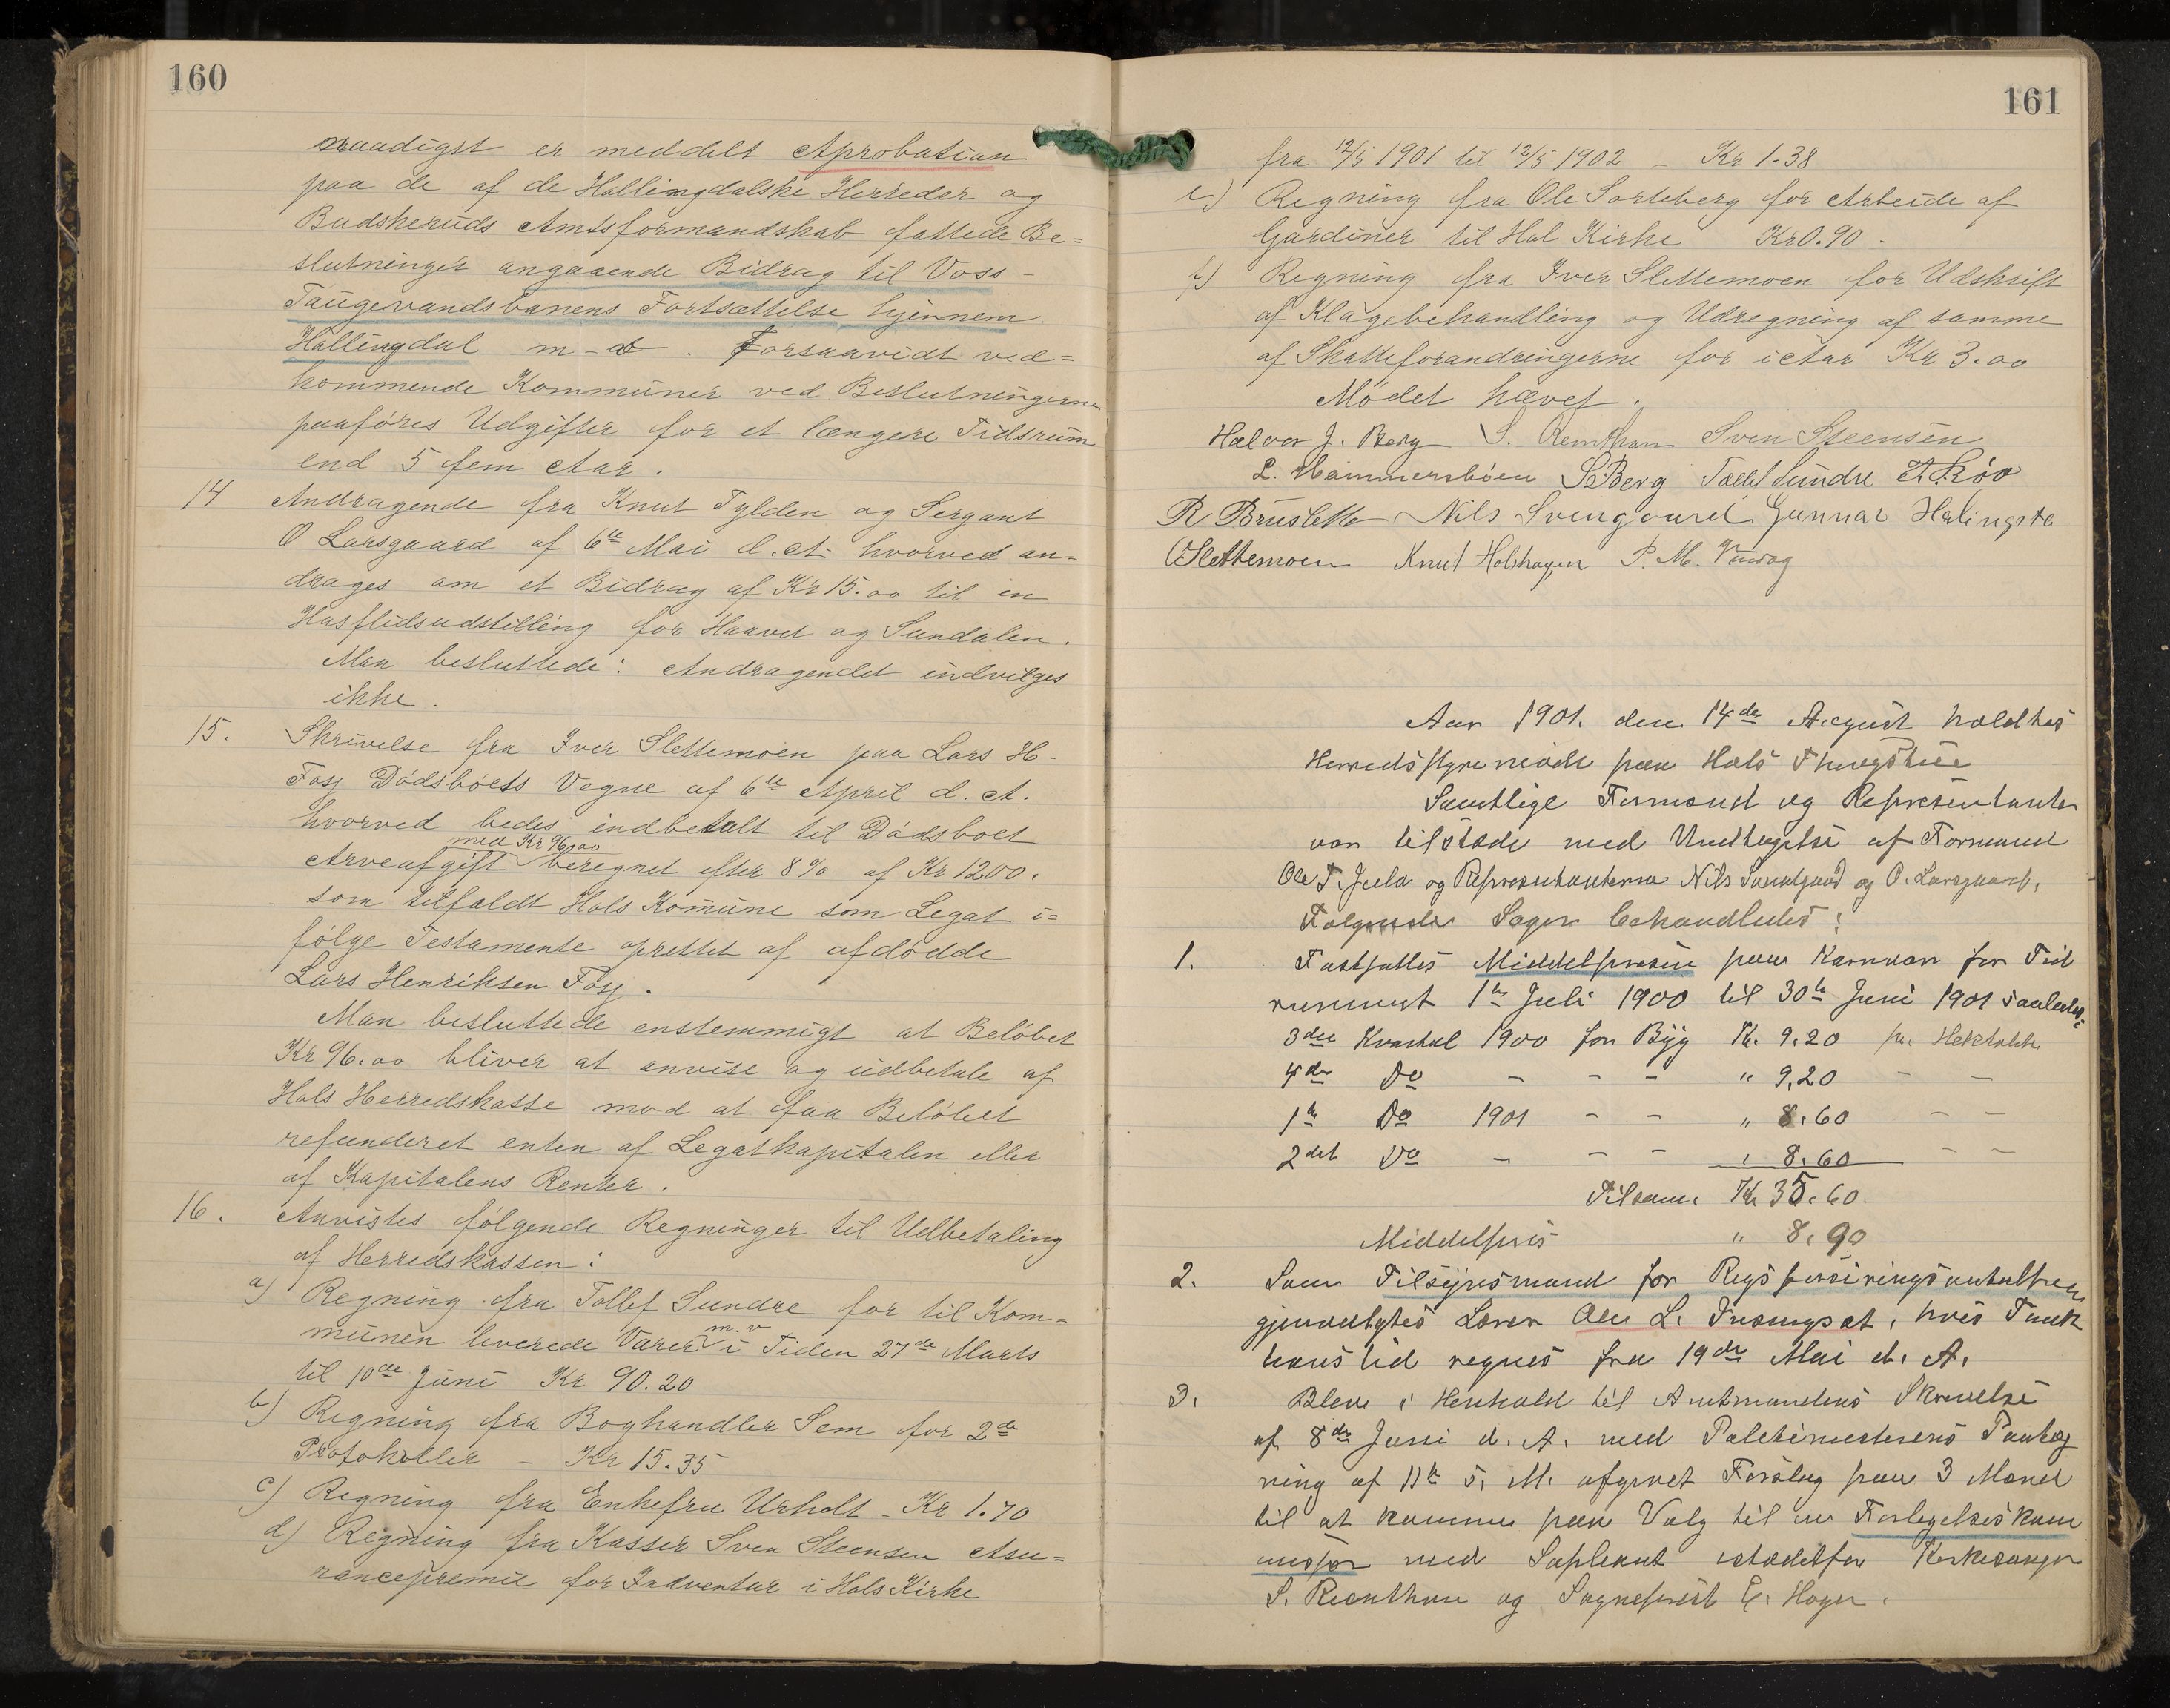 160
naadigst er meddelt Aprobation
paa de af de Hallingdalske Herreder og
Budskeruds Amtsformandskab fattede Be=
slutninger angaaende Bidrag til Voss-
Taugevandsbanens Fortsættelse hjennem
Hallingdal m-a. Forsaavidt ved=
kommende Kommuner ved Beslutningerne
paaføres Udgifter for et længere Tidsrum
end 5 fem Aar.
14 Andragende fra Knut Tylden og Sergant
O Larsgaard af 6te Mai d.A. hvorved an=
drages om et Bidrag af Kr 15.00 til en
Husflidsudstilling for Haavet og Sundalen.
Man besluttede: Andragendet indvilges
ikke.
15. Skrivelse fra Iver Slettemoen paa Lars H.
Fosj Dødsboets Vegne af 6te April d. A.
hvorved bedes indbetalt til Dødsboet
med Kr 96.00
Arveafgift beregnet efter 8% af Kr 1200.
som tilfaldt Hols Komune som Legat i=
følge Testamente oprettet af afdødde
Lars Henriksen Fosj.
Man besluttede enstemmigt at Beløbet
Kr 96.00 bliver at anvise og udbetale af
Hols Herredskasse mod at faa Beløbet
refunderet enten af Legatkapitalen eller
af Kapitalens Renter.
16. Anvistes følgende Regninger til Udbetaling
af Herredskassen:
a) Regning fra Tollef Sundre for til Kom=
munen leverede Varer m.v i Tiden 27de Marts
til 10de Juni Kr 90.20
b) Regning fra Boghandler Sem for 2de
Protokoller - Kr 15.35
c) Regning fra Enkefru Urholt - Kr 1.70
d) Regning fra Kasser Sven Steensen Asu=
rancepremie for Indventar i Hols Kirke
161
fra 12/5 1901 til 12/5 1902 - Kr 1.38
e) Regning fra Ole Sorteberg for Arbeide af
Gardiner til Hol Kirke Kr 0.90.
f) Regning fra Iver Slettemoen for Udskrift
af Klagebehandling og Udregning af samme
af Skatteforandringerne for i Aar Kr 3.00
Mødet hævet.
Halvor J. Berg S. Sven Steensen
L. Hammersbøen S Berg Sundre
R Bruslette Nils Svengaard Gunnar
Slettemoen Knut Holshagen P. M.
Aar 1901. den 14de August holdtes
Herredsstyremøde paa Hols Thingstue
Samtlige Formænd og Representanter
var tilstede med Undtagelse af Formand
Ole T. Jeila og Representanterne Nils Sundgaard og O. Larsgaard.
Følgende Sager behandledes:
1. Fastsattes Middelprisen paa Kornvarer for Tid
rummet 1te Juli 1900 til 30te Juni 1901 saaledes:
3die Kvartal 1900 for Byg Kr. 9.20 pr. Hektoliter
4de Do - - - " 9.20 - -
1te Do 1901 - - " 8.60 - -
2det Do - - - " 8.60 - -
Tilsam. Kr 35.60
Middelpris " 8.90
2. Som Tilsynsmand for Rigsforsikringsanstalten
gjenvalgtes Lærer Ole L. , hvis Funk
tionstid regnes fra 19de Mai d. A.
3. Blev i Henhold til Amtmandens Skrivelse
af 8de Juni d. A. med Politimesterens Paateg
ning af 11te s. M. afgivet Forslag paa 3 Mænd
til at komme paa Valg til en Forligelseskom
misjon med Supleant istedetfor Kirkesanger
S. og Sogneprest E. Hager.